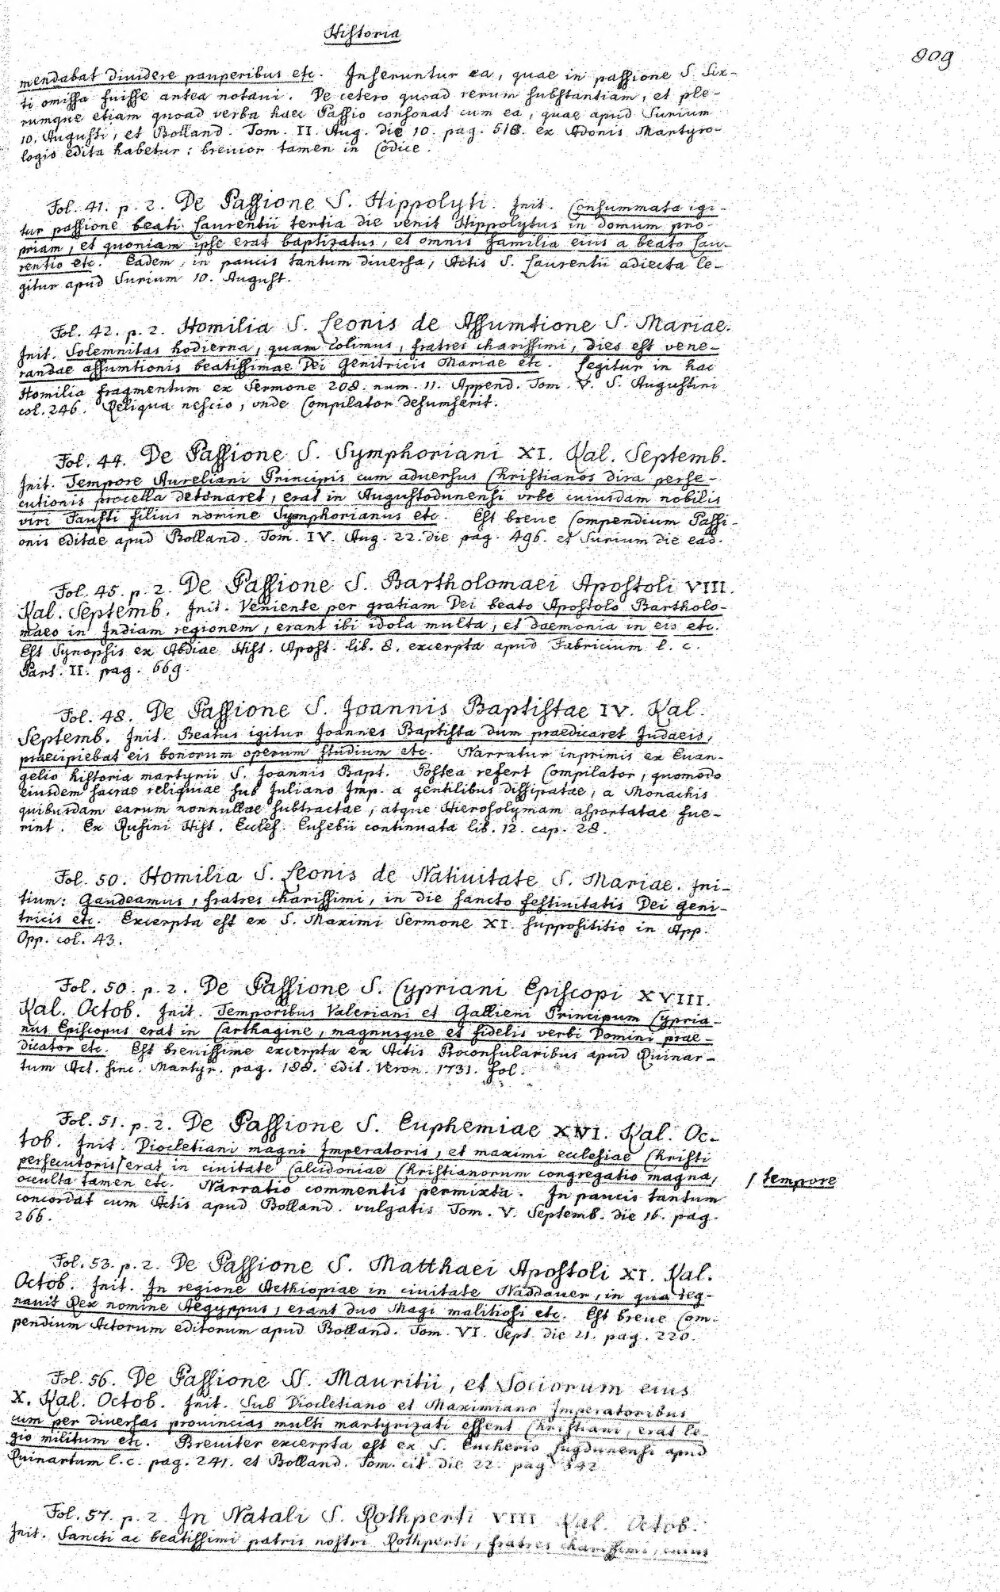 Historia
809
mendabat diuidere pauperibus etc. Inseruntur ea, quae in passione S. Six-
ti omissa fuisse antea notaui. De cetero quoad rerum substantiam, et ple-
rumque etiam quoad verba haec Passio consonat cum ea, quae apud Surium
10. Augusti, et Bolland. Tom. II. Aug. die 10. pag. 518. ex Adonis Martyro-
logio edita habetur: breuior tamen in Codice.
Fol. 41. p. 2. De Passione S. Hippolyti. Init. Consummata igi-
tur passione beati Laurentii tertia die venit Hippolytus in domum pro
priam, et quoniam ipse erat baptizatus, et omnis familia eius a beato Lau-
rentio etc. Eadem, in paucis tantum diuersa, Actis S. Laurentii adiecta le-
gitur apud Surium 10. August.
Fol. 42. p. 2. Homilia S. Leonis de Assumtione S. Mariae.
Init. Solemnitas hodierna, quam colimus, fratres charissimi, dies est vene-
randae assumtionis beatissimae Dei Genitricis Mariae etc. Legitur in hac
Homilia fragmentum ex Sermone 208. num. 11. Append. Tom. V. S. Augustini
col. 246. Reliqua nescio, vnde Compilator desumserit.
Fol. 44. De Passione S. Symphoriani XI. Kal. Septemb.
Init. Tempore Aureliani Principis cum aduersus Christianos dira perse-
cutionis procella detonaret, erat in Augustodunensi vrbe cuiusdam nobilis
viri Fausti filius nomine Symphorianus etc. Est breue Compendium Passi-
onis editae apud Bolland. Tom. IV. Aug. 22. die pag. 496. et Surium die ead.
Fol. 45. p. 2. De Passione S. Bartholomaei Apostoli VIII.
Kal. Septemb. Init. Veniente per gratiam Dei beato Apostolo Bartholo-
maeo in Indiam regionem, erant ibi idola multa, et daemonia in eis etc.
Est Synopsis ex Abdiae Hist. Apost. lib. 8. excerpta apud Fabricium l. c.
Part. II. pag. 669.
Fol. 48. De Passione S. Joannis Baptistae IV. Kal.
Septemb. Init. Beatus igitur Joannes Baptista dum praedicaret Judaeis,
praecipiebat eis bonorum operum studium etc. Narratur inprimis ex Euan-
gelio historia martyrii S. Joannis Bapt. Postea refert Compilator, quomodo
eiusdem sacrae reliquiae sub Juliano Imp. a gentilibus dissipatae, a Monachis
quibusdam earum nonnullae subtractae, atque Hierosolymam asportatae fue-
rint. Ex Rufini Hist. Eccles. Eusebii continuata lib. 12. cap. 28.
Fol. 50. Homilia S. Leonis de Natiuitate S. Mariae. Ini-
tium: Gaudeamus, fratres charissimi, in die sancto festiuitatis Dei geni-
tricis etc. Excerpta est ex S. Maximi Sermone XI. supposititio in App.
Opp. col. 43.
Fol. 50. p. 2. De Passione S. Cypriani Episcopi XVIII.
Kal. Octob. Init. Temporibus Valeriani et Gallieni Principum Cypria-
nus Episcopus erat in Carthagine, magnusque et fidelis verbi Domini prae-
dicator etc. Est breuissime excerpta ex Actis Proconsularibus apud Ruinar-
tum Act. sinc. Martyr. pag. 188. edit. Veron. 1731. fol.
Fol. 51. p. 2. De Passione S. Euphemiae XVI. Kal. Oc-
tob. Init. Diocletiani magni Imperatoris, et maximi ecclesiae Christi
persecutoris / erat in ciuitate Calcidoniae Christianorum congregatio magna,
/ tempore
occulta tamen etc. Narratio commentis permixta. In paucis tantum
concordat cum Actis apud Bolland. vulgatis Tom. V. Septemb. die 16. pag.
266.
Fol. 53. p. 2. De Passione S. Matthaei Apostoli XI. Kal.
Octob. Init. In regione Aethiopiae in ciuitate Naddauer, in qua reg-
nauit Rex nomine Aegyppus, erant duo Magi malitiosi etc. Est breue Com-
pendium Actorum editorum apud Bolland. Tom. VI. Sept. die 21. pag. 220.
Fol. 56. De Passione SS. Mauritii, et Sociorum eius
X. Kal. Octob. Init. Sub Diocletiano et Maximiano Imperatoribus
cum per diuersas prouincias multi martyrizati essent Christiani, erat le-
gio militum etc. Breuiter excerpta est ex S. Eucherio Lugdunensi apud
Ruinartum l. c. pag. 241. et Bolland. Tom. cit. die 22. pag. 342.
Fol. 57. p. 2. In Natali S. Rothperti VIII. Kal. Octob.
Init. Sancti ac beatissimi patris nostri Rothperti, fratres charissimi, cuius